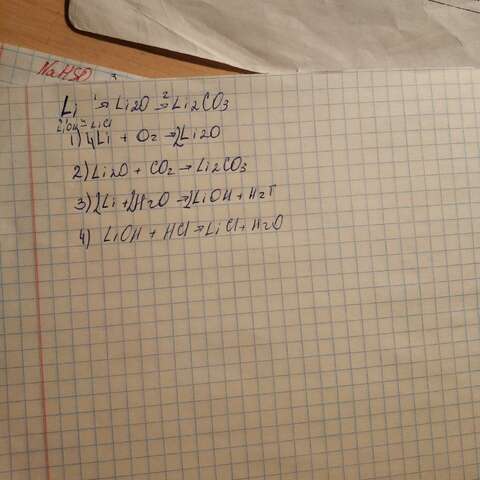 NaHSO3
Li 1→ Li2O 2→ Li2CO3
LiOH → LiCl
1) 4Li + O2 → 2Li2O
2) Li2O + CO2 → Li2CO3
3) 2Li + 2H2O → 2LiOH + H2↑
4) LiOH + HCl → LiCl + H2O